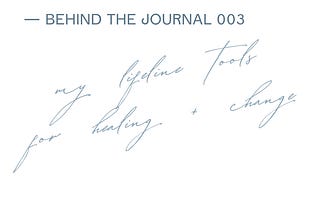 — BEHIND THE JOURNAL 003
my lifeline tools
for healing + change